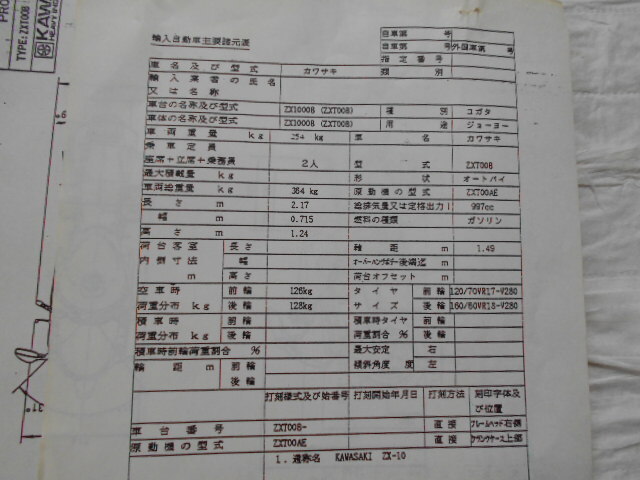 TYPE: ZXT00B
KAWA
輸入自動車主要諸元表
自車第 号
自車第 号 外国車第 号
指定番号
車名及び型式 カワサキ 類別
輸入業者の氏名
又は名称
車台の名称及び型式 ZX1000B (ZXT00B) 種別 コガタ
車体の名称及び型式 ZX1000B (ZXT00B) 用途 ジョーヨー
車両重量 kg 254 kg 車名 カワサキ
乗車定員
座席+立席+乗務員 2人 型式 ZXT00B
最大積載量 kg 形状 オートバイ
車両総重量 kg 364 kg 原動機の型式 ZXT00AE
長さ m 2.17 総排気量又は定格出力l 997cc
幅 m 0.715 燃料の種類 ガソリン
高さ m 1.24
荷台客室 長さ 軸距 m 1.49
内側寸法 幅 オーバーハング 後端迄 m
m 高さ 荷台オフセット m
空車時 前輪 126kg タイヤ 前輪 120/70VR17-V280
荷重分布 kg 後輪 128kg サイズ 後輪 160/60VR18-V280
積車時 前輪 積車時タイヤ 前輪
荷重分布 kg 後輪 荷重割合 % 後輪
積車時前輪荷重割合 % 最大安定 右
輪距 m 前輪 傾斜角度 度 左
後輪
打刻様式及び始番号 打刻開始年月日 打刻方法 刻印字体及び位置
車台番号 ZXT00B- 直接 フレームヘッド右側
原動機の型式 ZXT00AE 直接 クランクケース上部
1. 通称名 KAWASAKI ZX-10